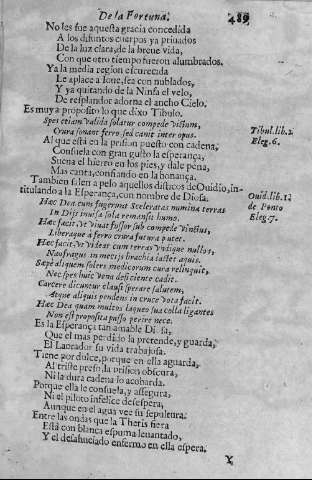 De la Fortuna. 489
No les fue aquesta gracia concedida
A los difuntos cuerpos ya priuados
De la luz clara, de la breue vida,
Con que otro tiempo fueron alumbrados.
Ya la media region escurecida
Le aplace a Ione, sea con nublados,
Y ya quitando de la Ninfa el velo,
De resplandor adorna el ancho Cielo.
Es muy a proposito lo que dixo Tibulo.
Spes etiam valida solatur compede vinctum,
Crura sonant ferro, sed canit inter opus.
Tibul. lib. 2.
Eleg. 6.
Al que està en la prision puesto con cadena,
Consuela con gran gusto la esperança,
Suena el hierro en los pies, y dale pena,
Mas canta, confiando en la bonança.
Tambien salen a pelo aquellos disticos de Ouidio, in-
titulando a la Esperança, con nombre de Diosa.
Ouid. lib. 1.
de Ponto
Eleg. 7.
Hæc Dea cum fugerent sceleratas numina terras
In Dijs inuisa sola remansit humo.
Hæc facit, vt viuat fossor sub compede vinctus,
Liberaque à ferro crura futura putet.
Hæc facit, vt videat cum terras vndique nullas,
Naufragus in medijs brachia iactet aquis.
Sæpè aliquem solers medicorum cura reliquit,
Nec spes huic vena deficiente cadit.
Carcere dicuntur clausi sperare salutem,
Atque aliquis pendens in cruce vota facit.
Hæc Dea quam multos laqueo sua colla ligantes
Non est proposita passa perire nece.
Es la Esperança tan amable Diosa,
Que el mas perdido la pretende, y guarda,
El Laorador su vida trabajosa.
Tiene por dulce, porque en ella aguarda,
Al triste preso, la prision obscura,
Ni la dura cadena lo acobarda.
Porque ella le consuela, y assegura,
Ni el piloto infelice desespera,
Aunque en el agua vee su sepultura.
Entre las ondas que la Thetis fiera
Està con blanca espuma leuantado,
Y el desahuciado enfermo en ella espera.
Y